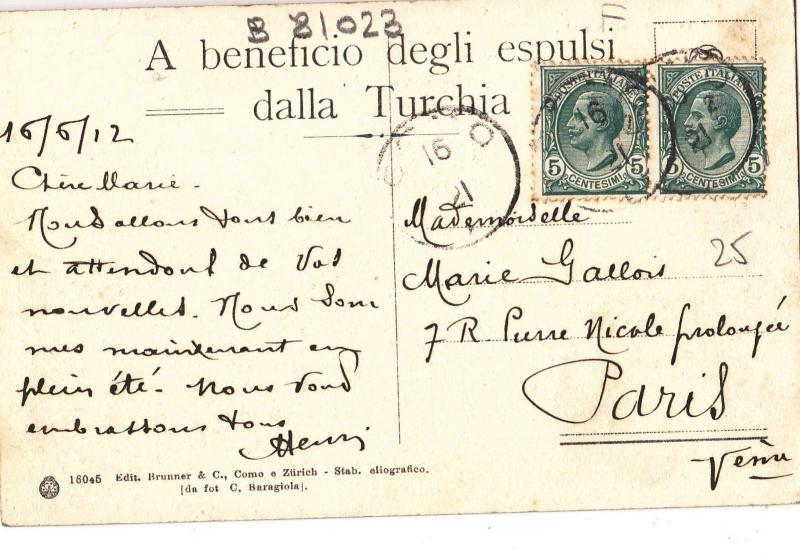 B 21.023
A beneficio degli espulsi
dalla Turchia
POSTE ITALIANE
5 CENTESIMI 5
POSTE ITALIANE
5 CENTESIMI 5
16
16
16/6/12
Chère Marie.
Nous allons tous bien
et attendons de vos
nouvelles. Nous som
mes maintenant en
plein été. Nous vous
embrassons tous
Henri
Mademoiselle
Marie Gallois
25
7 R Pierre Nicole prolongée
Paris
Vème
16045 Edit. Brunner & C., Como e Zürich - Stab. eliografico.
[da fot C. Baragiola].